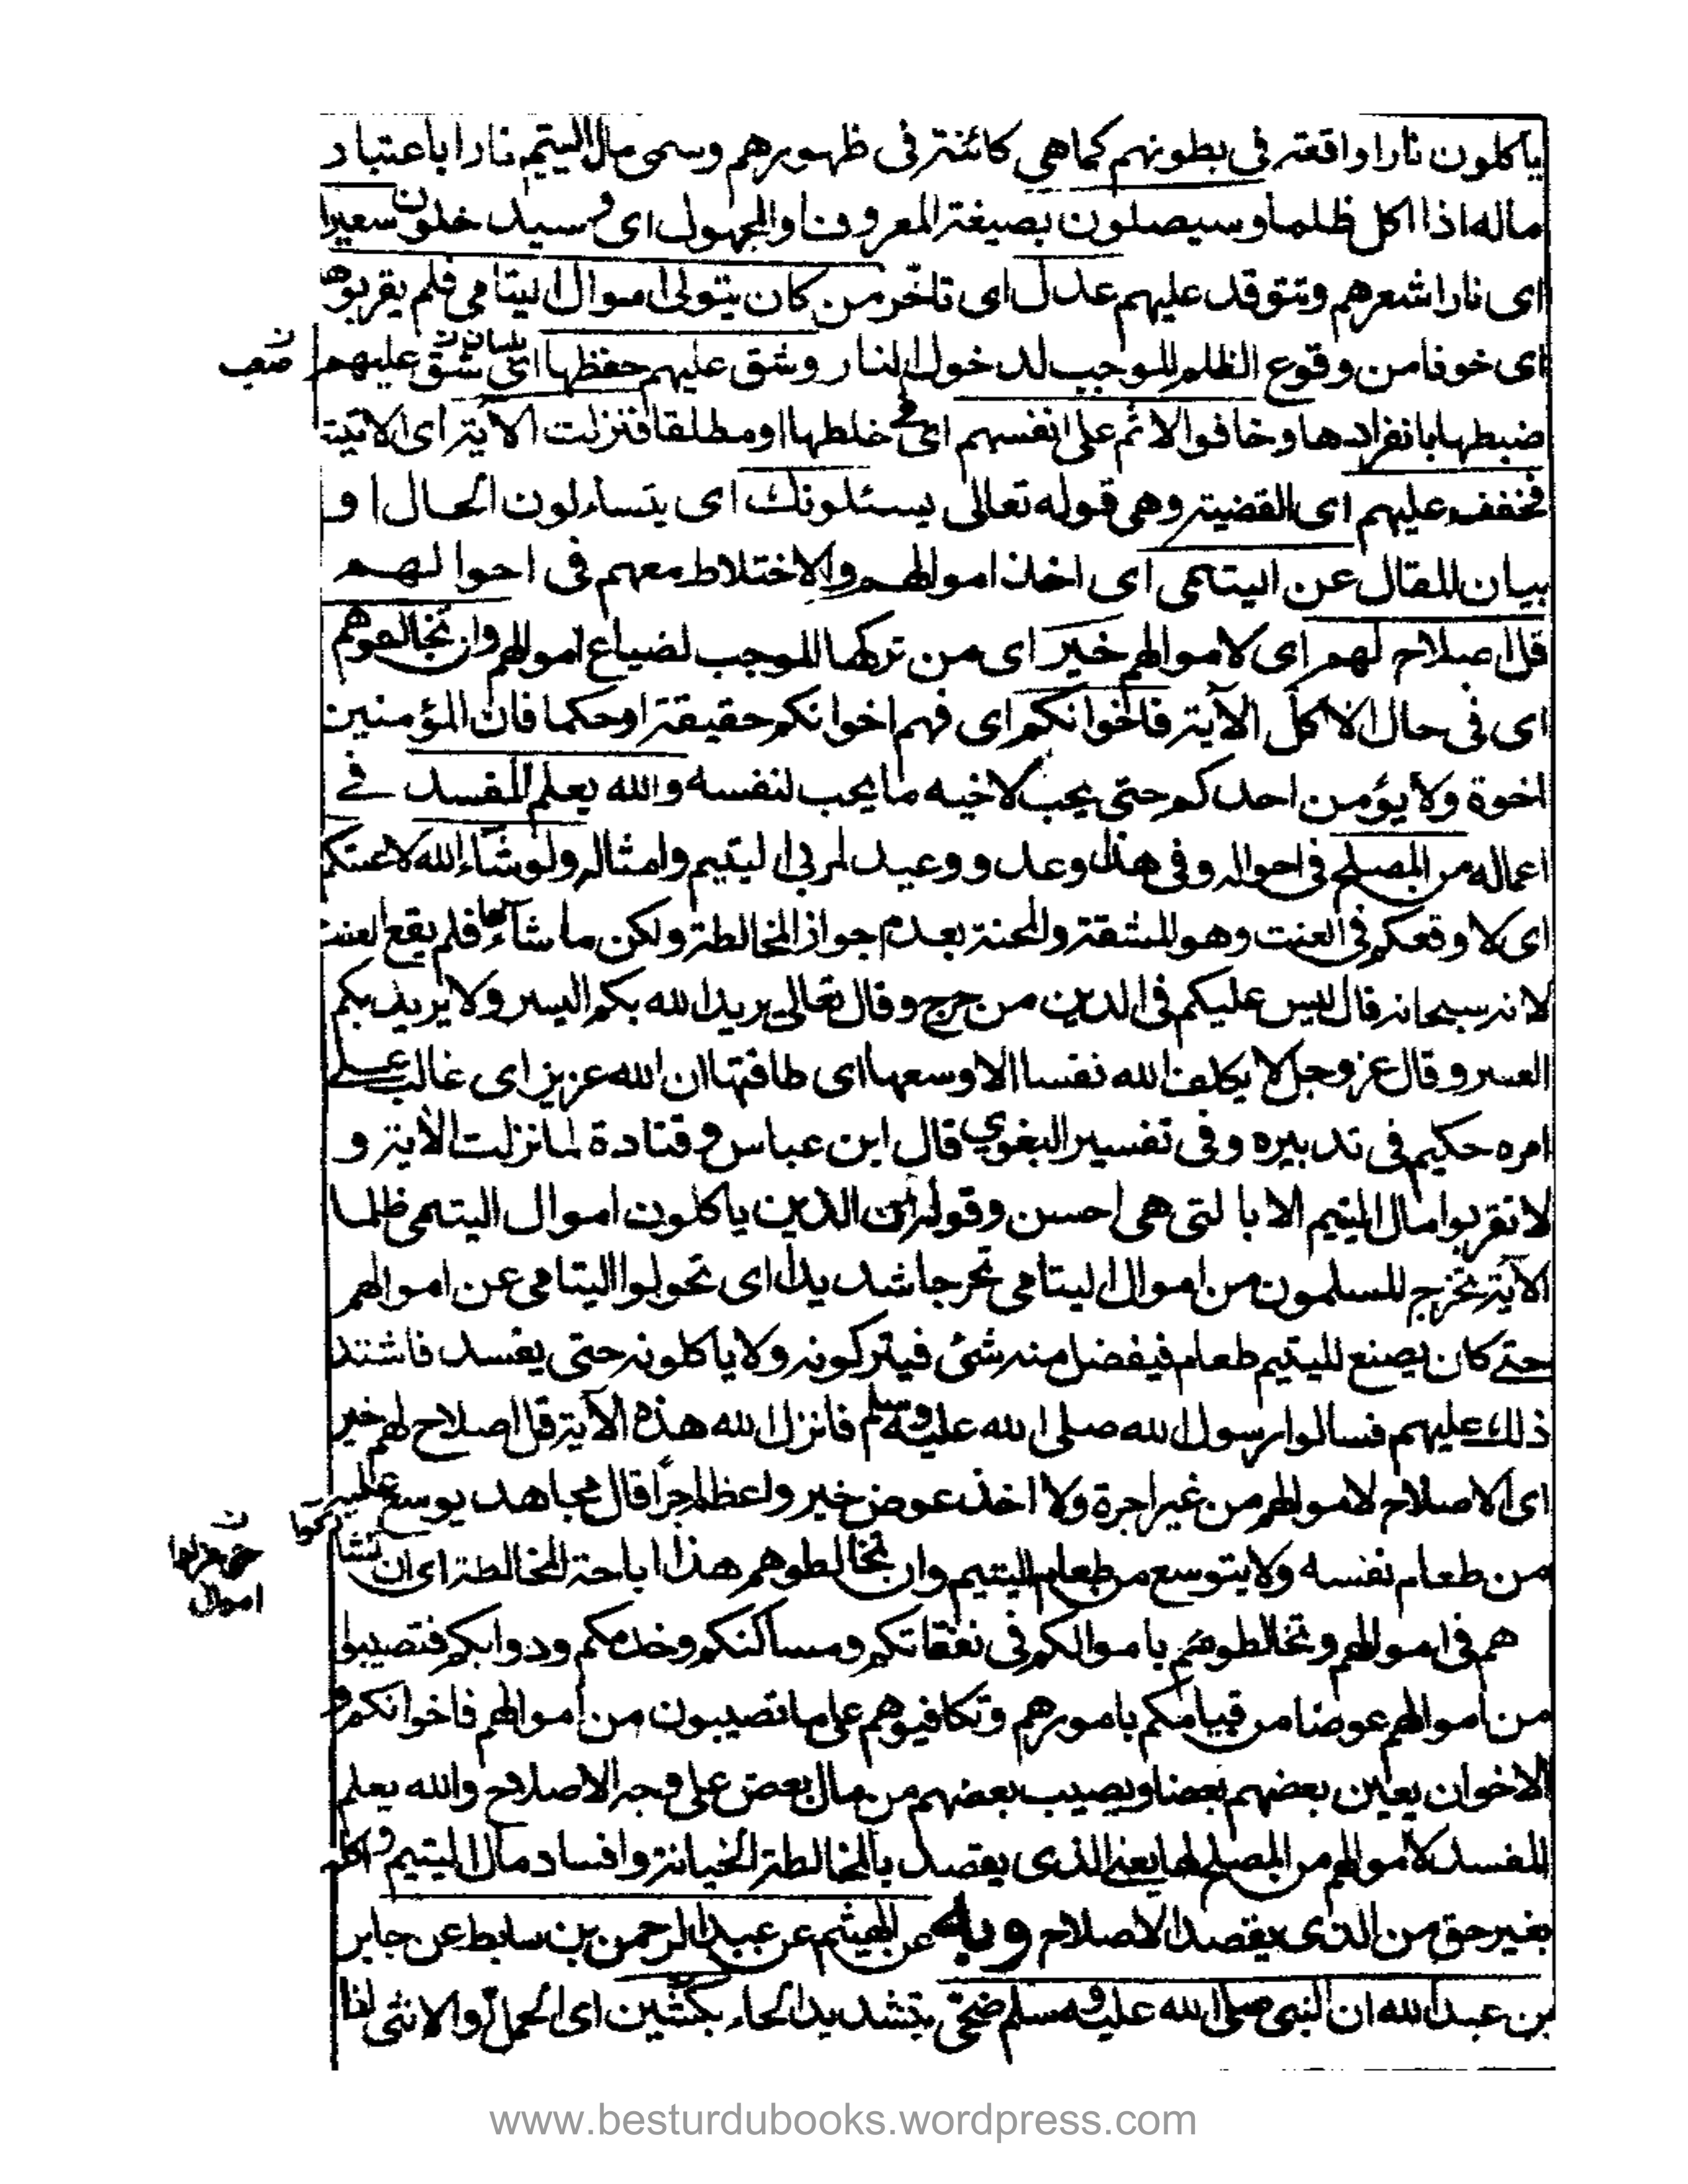 ياكلون نارا واقعة فى بطونهم كما هى كائنة فى ظهورهم وسمى مال اليتيم نارا باعتبار
ماله اذا اكل ظلما وسيصلون بصيغة المعروف والمجهول اى وسيدخلون سعيرا
اى نارا شعرهم وتتوقد عليهم عدل اى تاخر من كان يتولى اموال اليتامى فلم يقربوها
اى خوفا من وقوع الظلم الموجب لدخول النار وشق عليهم حفظها اى شق عليهم
ضبطها بانفرادها وخافوا الاثم على انفسهم اى فى خلطها او مطلقا فنزلت الآية اى الاتية
فخفف عليهم اى القضية وهى قوله تعالى يسئلونك اى يتساءلون الحال او
بيان المقال عن اليتمى اى اخذ اموالهم والاختلاط معهم فى احوالهم
قل اصلاح لهم اى لاموالهم خير اى من تركها الموجب لضياع اموالهم وان تخالطوهم
اى فى حال الاكل الآية فاخوانكم اى فهم اخوانكم حقيقة او حكما فان المؤمنين
اخوة ولا يؤمن احدكم حتى يحب لاخيه ما يحب لنفسه والله يعلم المفسد فى
اعماله من المصلح فى احواله وفى هذا وعد ووعيد لمربى اليتيم وامثاله ولو شاء الله لاعنتكم
اى لاوقعكم فى العنت وهو المشقة والمحنة بعدم جواز المخالطة ولكن ما شاء فلم يقع العنت
لانه سبحانه قال ليس عليكم فى الدين من حرج وقال تعالى يريد الله بكم اليسر ولا يريد بكم
العسر وقال عز وجل لا يكلف الله نفسا الا وسعها اى طاقتها ان الله عزيز اى غالب على
امره حكيم فى تدبيره وفى تفسير البغوي قال ابن عباس وقتادة لما نزلت الآية و
لا تقربوا مال اليتيم الا بالتى هى احسن وقوله ان الذين ياكلون اموال اليتمى ظلما
الآية تحرج المسلمون من اموال اليتامى تحرجا شديدا اى تحولوا اليتامى عن اموالهم
حتى كان يصنع لليتيم طعام فيفضل منه شئ فيتركونه ولا ياكلونه حتى يفسد فاشتد
ذلك عليهم فسالوا رسول الله صلى الله عليه وسلم فانزل الله هذه الآية قل اصلاح لهم خير
اى الاصلاح لاموالهم من غير اجرة ولا اخذ عوض خير واعظم اجرا قال مجاهد يوسع عليه
من طعام نفسه ولا يتوسع من طعام اليتيم وان تخالطوهم هذا اباحة المخالطة اى ان تشاركوا
هم فى اموالهم وتخالطوهم باموالكم فى نفقاتكم ومساكنكم وخدمكم ودوابكم فتصيبوا
من اموالهم عوضا من قيامكم بامورهم وتكافيوهم على ما تصيبون من اموالهم فاخوانكم و
الاخوان يعين بعضهم بعضا ويصيب بعضهم من مال بعض على وجه الاصلاح والله يعلم
المفسد لاموالهم من المصلح لها يعنى الذى يقصد بالمخالطة الخيانة وافساد مال اليتيم واكله
بغير حق من الذى يقصد الاصلاح وبه عن الهيثم عن عبد الرحمن بن سابط عن جابر
بن عبد الله ان النبى صلى الله عليه وسلم ضحّى بتشديد الحاء بكبشين اى الحمل والانثى
اموال
www.besturdubooks.wordpress.com